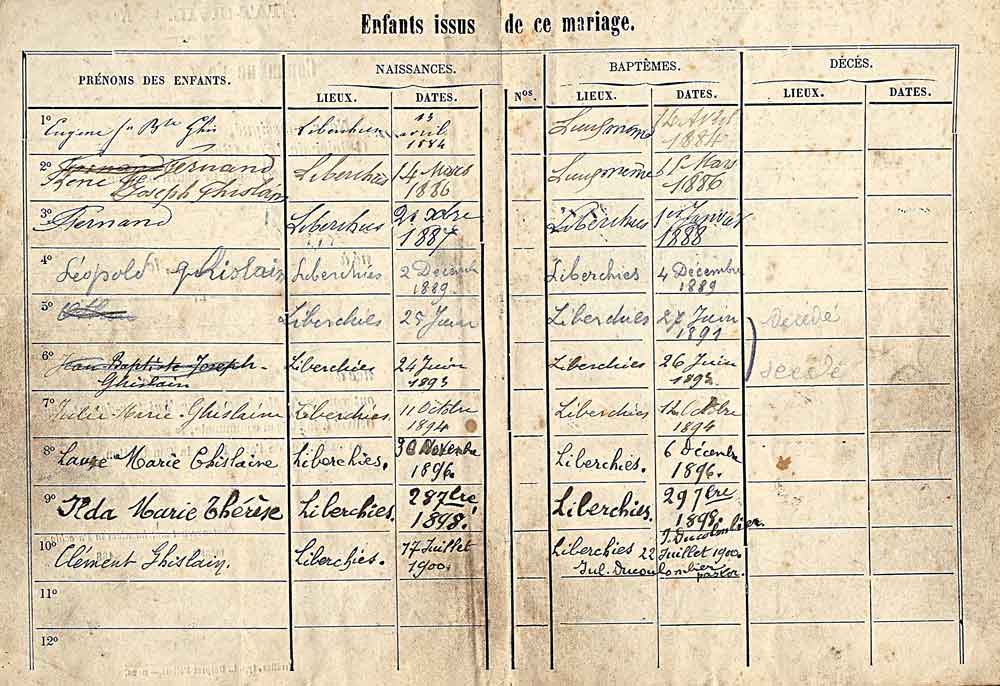 Enfants issus de ce mariage.
PRÉNOMS DES ENFANTS. NAISSANCES. BAPTÊMES. DÉCÈS.
LIEUX. DATES. Nos. LIEUX. DATES. LIEUX. DATES.
1º Eugène Jn Bte Ghis Liberchies 13 avril 1884 12 Avril 1884
2º Fernand Fernand René Joseph Ghislain Liberchies 14 Mars 1886 15 Mars 1886
3º Fernand Liberchies 1887 Liberchies 1er Janvier 1888
4º Léopold Ghislain Liberchies 2 Décemb 1889 Liberchies 4 Décembre 1889
5º Liberchies 25 Juin Liberchies 27 Juin 1891 Décédé
6º Jean Baptiste Joseph Ghislain Liberchies 24 Juin 1893 Liberchies 26 Juin 1893 Décédé
7º Julie Marie Ghislaine Liberchies. 11 Octobre 1894 Liberchies 12 Octobre 1894
8º Laure Marie Ghislaine Liberchies. 30 Novembre 1896. Liberchies. 6 Décembre 1896.
9º Ilda Marie Thérèse Liberchies. 28 7bre 1898. Liberchies. 29 7bre 1898.
J. Ducolombier
10º Clément Ghislain. Liberchies. 17 Juillet 1900. Liberchies 22 Juillet 1900.
Jul. Ducoulombier pastor.
11º
12º